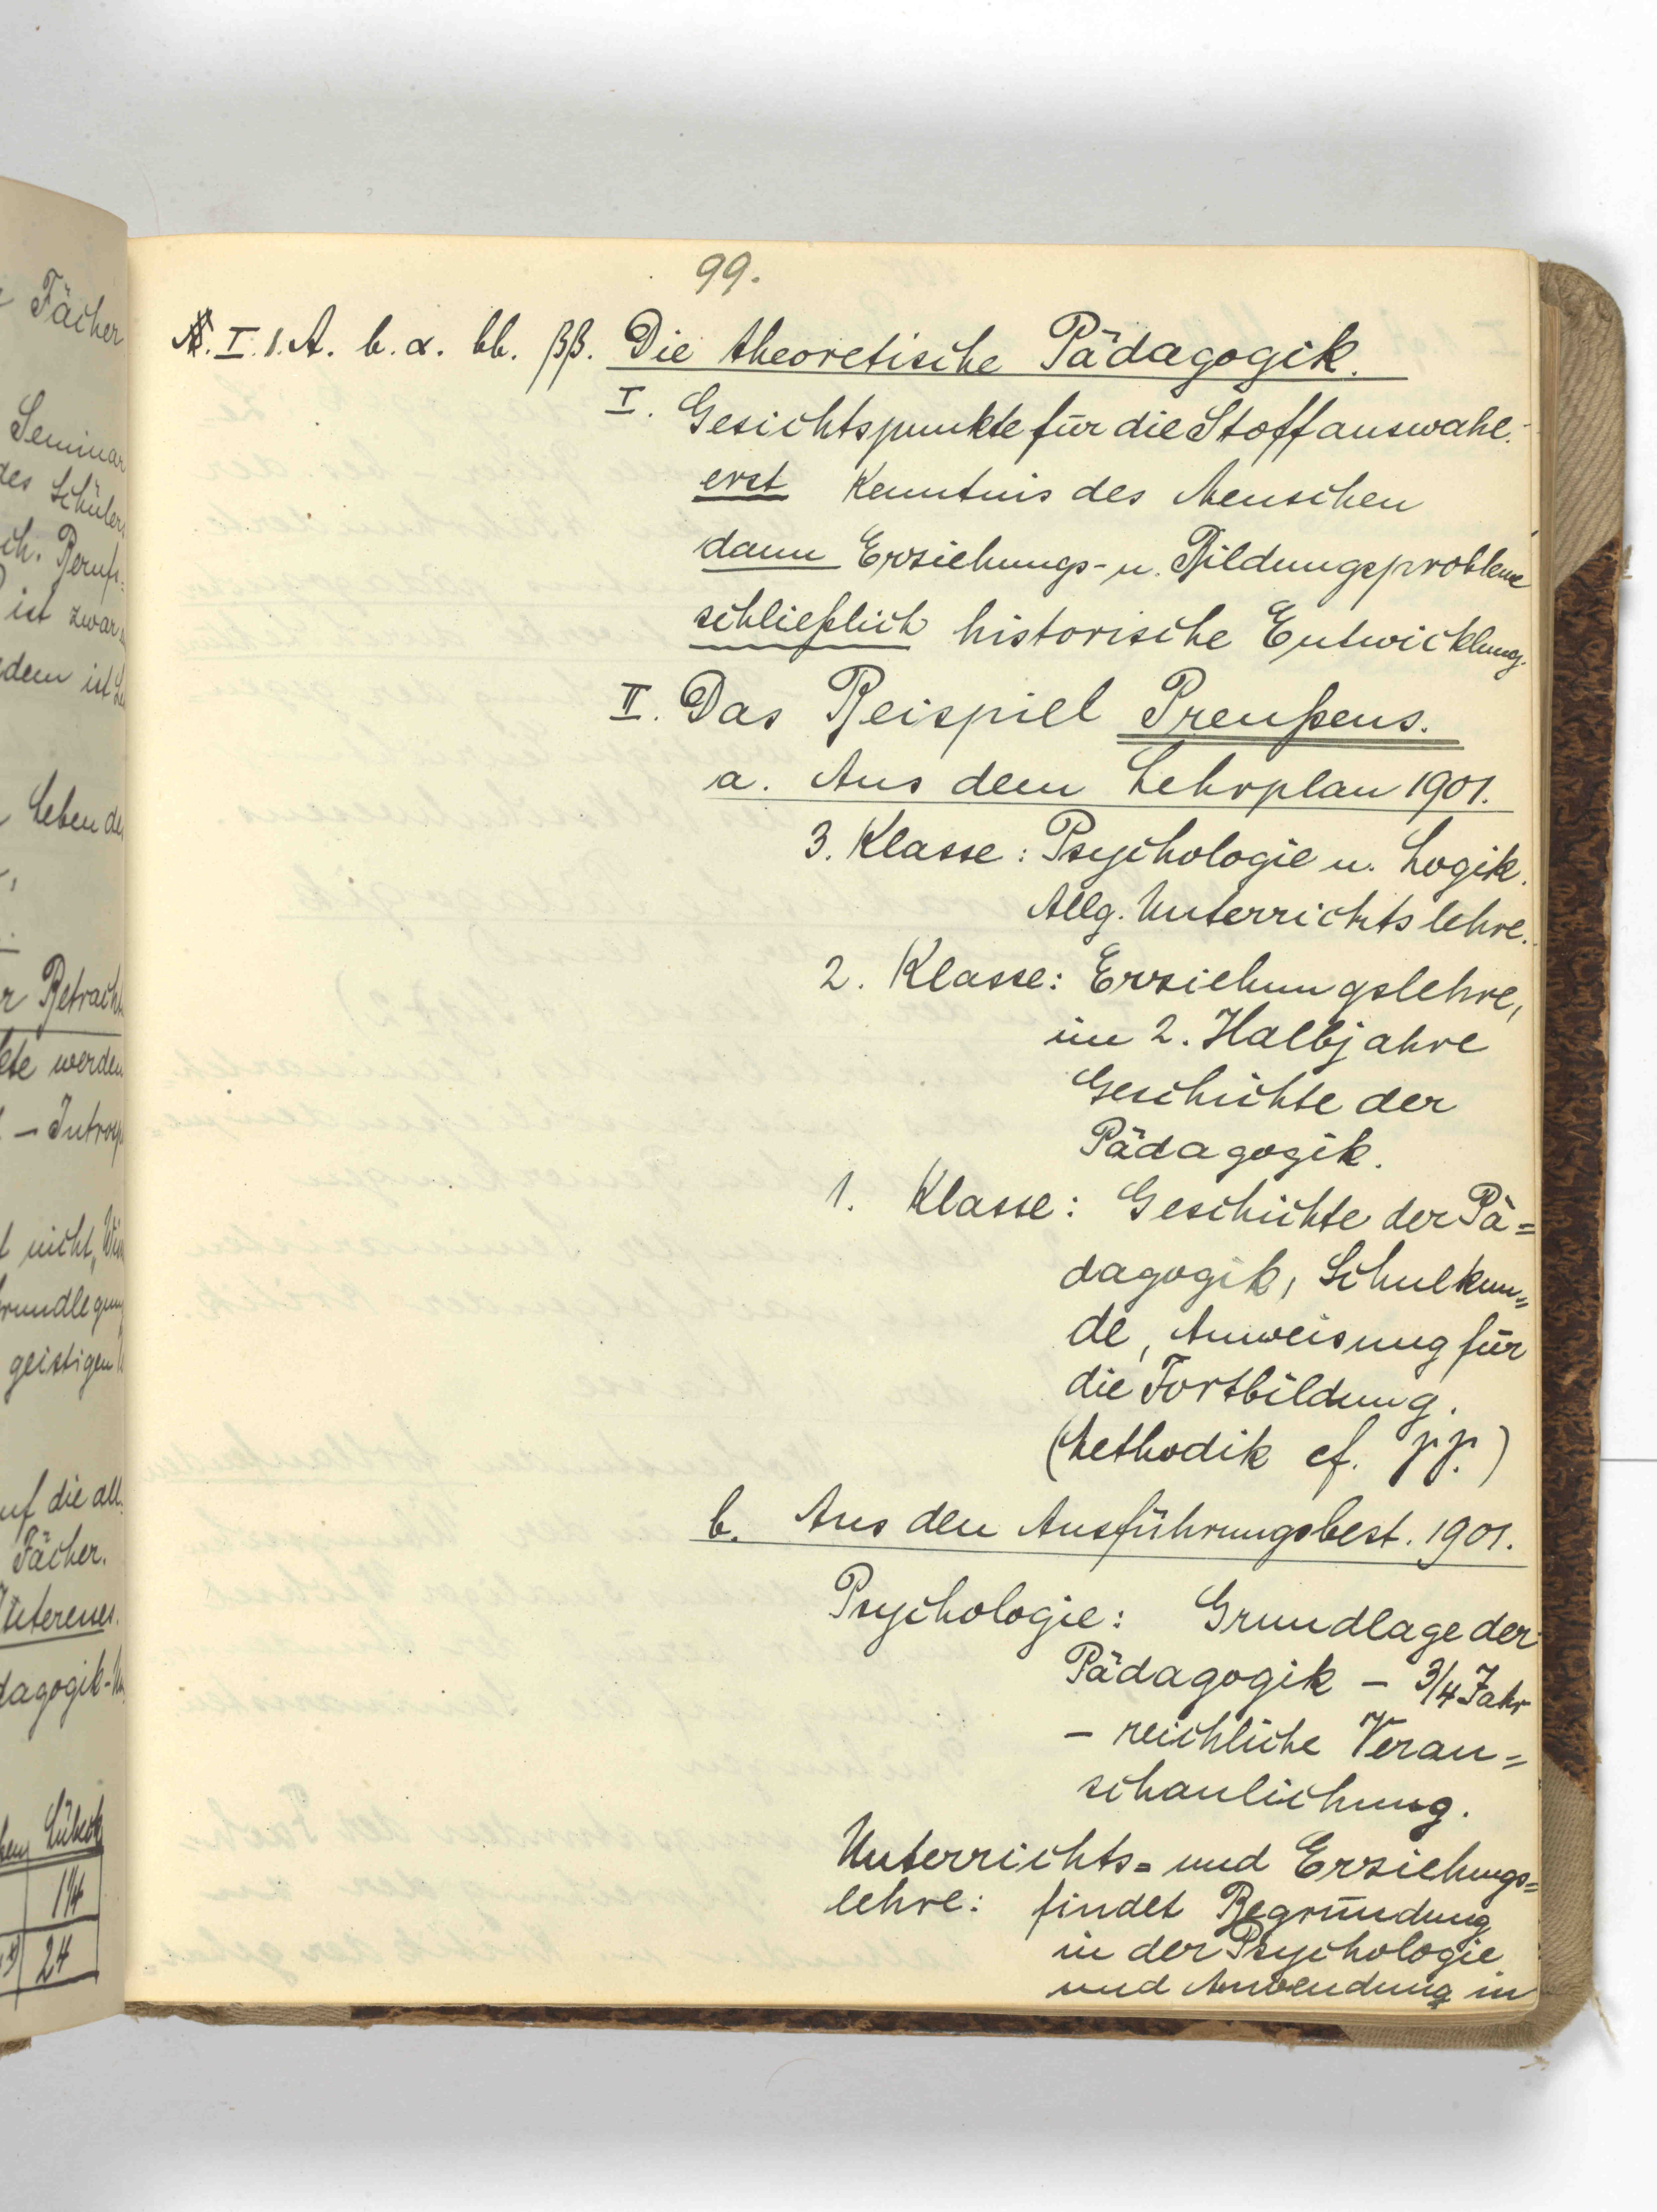 Fächer
Seminar
des Schülers
ch. Berufs-
ist zwar
dem ist
Leben des
r Betracht
ete werden
nicht
rundlegung
geistigen
uf die all.
Fächer.
Interesses.
dagogik-
Lübeck
1¼
24
99.
I. 1. A. b. α. bb. ββ. Die theoretische Pädagogik.
I. Gesichtspunkte für die Stoffauswahl.
erst Kenntnis des Menschen
dann Erziehungs- u. Bildungsprobleme
schließlich historische Entwicklung.
II. Das Beispiel Preußens.
a. Aus dem Lehrplan 1901.
3. Klasse: Psychologie u. Logik.
Allg. Unterrichtslehre.
2. Klasse: Erziehungslehre,
im 2. Halbjahre
Geschichte der
Pädagogik.
1. Klasse: Geschichte der Pä=
dagogik, Schulkun=
de, Anweisung für
die Fortbildung.
(Methodik cf. γγ.)
b. Aus den Ausführungsbest. 1901.
Psychologie: Grundlage der
Pädagogik – 3/4 Jahr
– reichliche Veran=
schaulichung.
Unterrichts= und Erziehungs=
lehre: findet Begründung
in der Psychologie
und Anwendung in